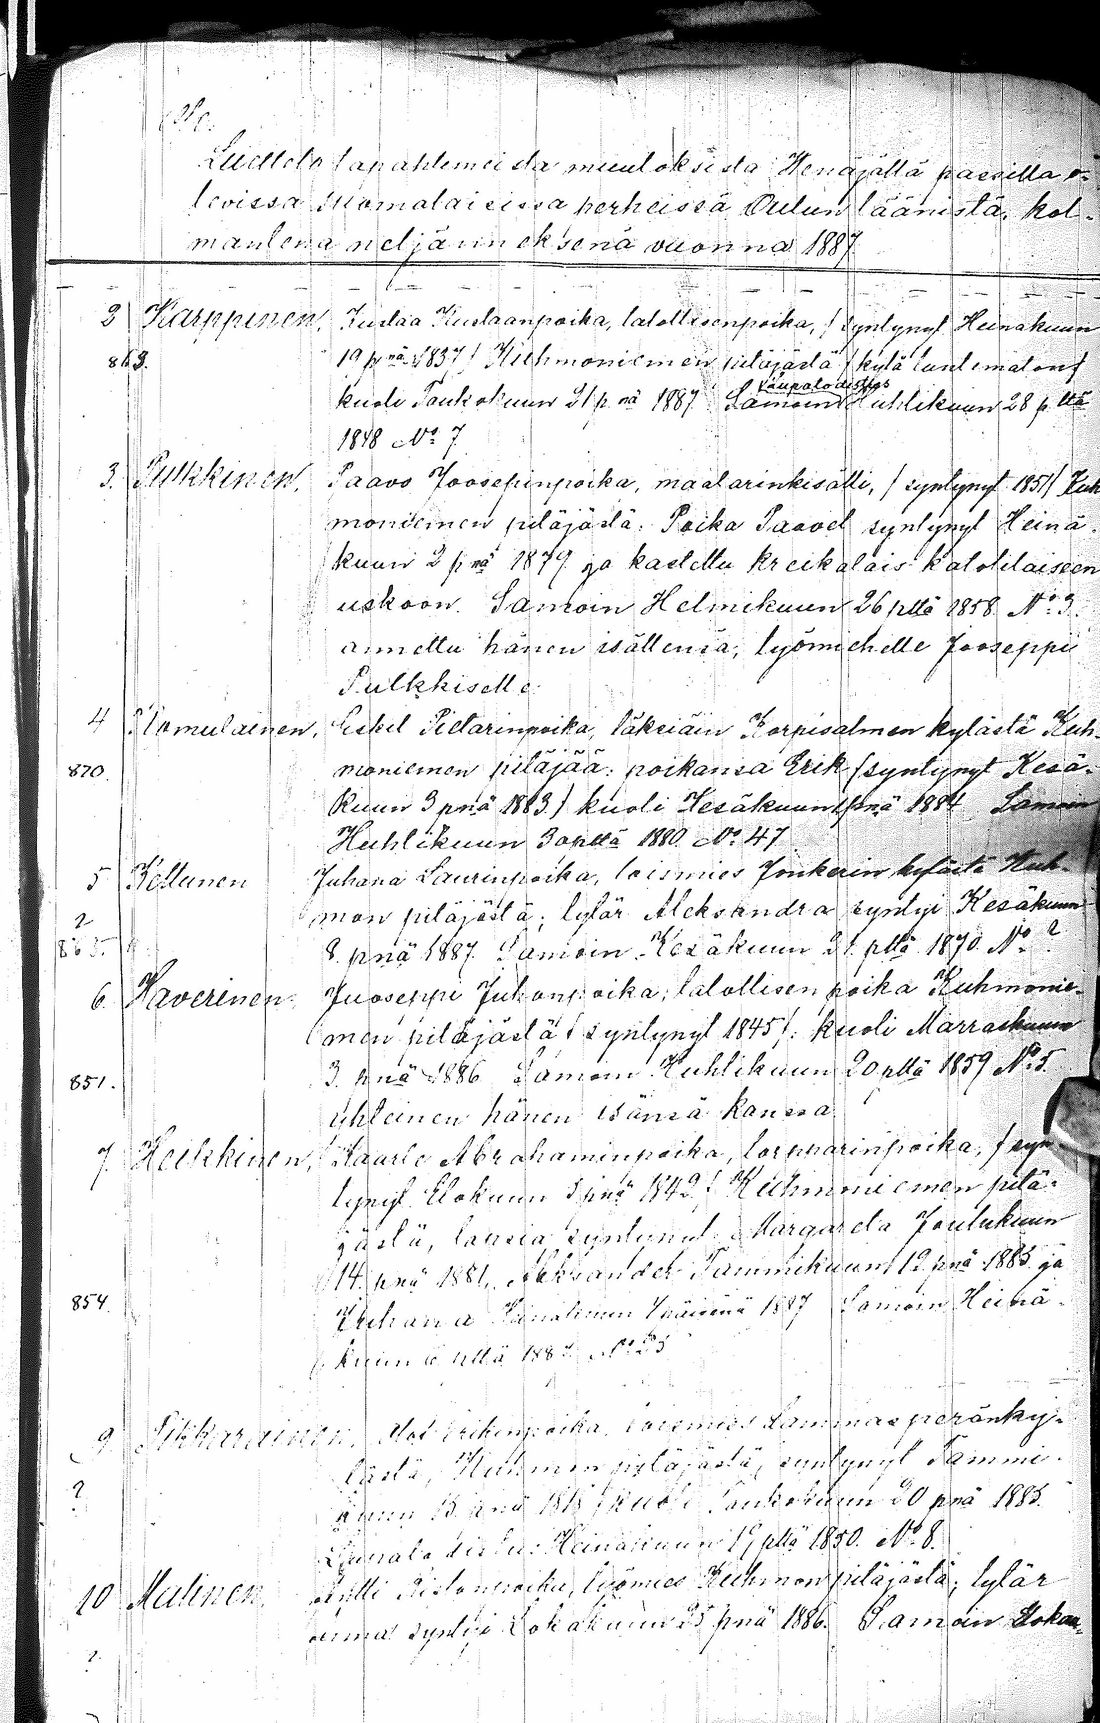 Luettelo tapahtuneista muutoksista Venäjällä passilla o-
levissa suomalaisissa perheissä Oulun läänistä, kol-
mantena neljänneksenä vuonna 1887.
2 Karppinen, Kustaa Kustaanpoika, talollisenpoika, / syntynyt Heinäkuun
863. 19 pnä 1837 / Kuhmoniemen pitäjästä / kylä tuntematon /
kuoli Toukokuun 21 pnä 1887 Samoin Huhtikuun 28 pltä
1848 No 7
3. Pulkkinen, Paavo Joosepinpoika, maalarinkisälli, / syntynyt 1851 / Kuh
moniemen pitäjästä: Poika Paavel syntynyt Heinä-
kuun 2 pnä 1879 ja kastettu kreikalais katolilaiseen
uskoon. Samoin Helmikuun 26 pltä 1858 No 3.
annettu hänen isällensä, työmiehelle Jooseppi
Pulkkiselle.
4 Romulainen, Eskel Pietarinpoika, läksiäin Korpisalmen kylästä Kuh-
870. moniemen pitäjää: poikansa Erik / syntynyt Kesä-
kuun 3 pnä 1883 / kuoli Kesäkuun pnä 1884 Samoin
Huhtikuun 30 pltä 1880 No 47
5 Keltunen Juhana Laurinpoika, loismies Jonkerin kylästä Kuh-
2 mon pitäjästä; tytär Aleksandra syntyi Kesäkuun
865. 8 pnä 1887. Samoin Kesäkuun 21. pltä 1870. No ?
6. Haverinen, Juoseppi Juhonpoika, talollisen poika Kuhmonie-
men pitäjästä / syntynyt 1845 /: kuoli Marraskuun
851. 3. pnä 1886 Samoin Huhtikuun 20 pltä 1859 No 5
yhteinen hänen isänsä kanssa
7. Heikkinen, Kaarle Abrahaminpoika, torpparinpoika, / syn
tynyt Elokuun 3 pnä 1842 / Kuhmoniemen pitä-
jästä, lapsia syntynyt Margareta Joulukuun
14. pnä 1881, Aleksander Tammikuun 12 pnä 1885 ja
854. Juhana Heinäkuun 1887 Samoin Heinä-
kuun 6 pltä
9 Pikkarainen, Erikinpoika, loismies Lammasperänky-
lästä, Kuhmon pitäjästä, syntynyt Tammi-
? kuun 15 pnä / kuoli Toukokuun 20 pnä 1885.
Heinäkuun 19 pltä 1850. No 8.
10 Malinen, Antti Ristonpoika, työmies Kuhmon pitäjästä; tytär
Anna syntyi Lokakuun 25 pnä 1886. Samoin
?